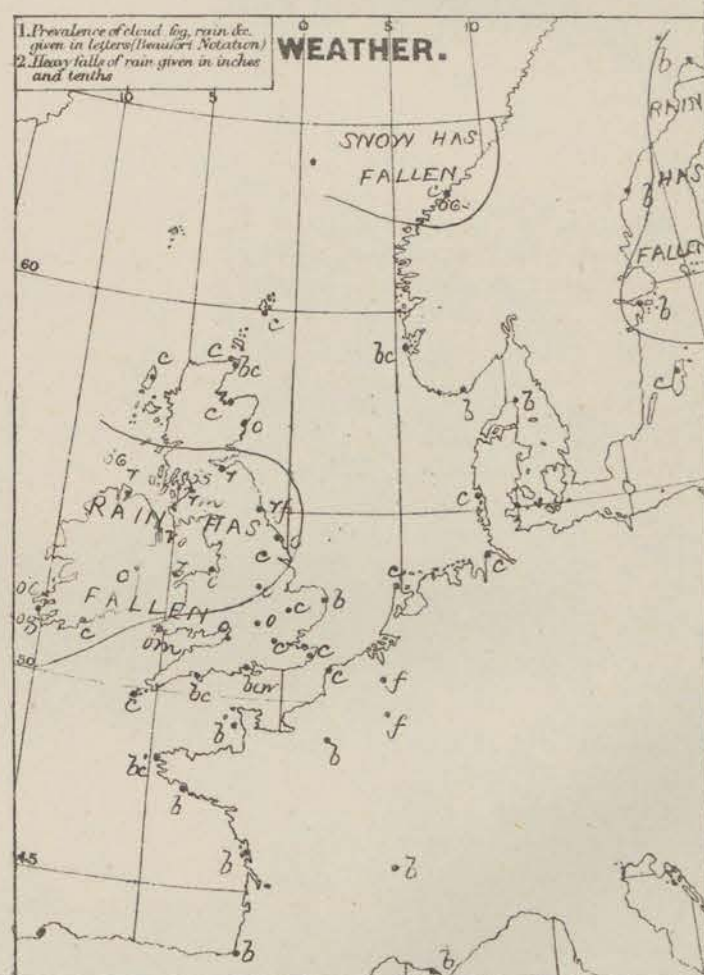 1. Prevalence of cloud, fog, rain &c.
given in letters (Beaufort Notation)
2. Heavy falls of rain given in inches
and tenths
WEATHER.
10 5 0 5 10
SNOW HAS
FALLEN
c
b
RAIN
b
HAS
FALLEN
b
60
c
c
bc
c
c
o
bc
b
b
c
r
r
RAIN HAS
FALLEN
c
c
c
o
c
b
c
o
c
c
50
c
bc
c
f
f
b
b
bc
b
b
45
b
b
b